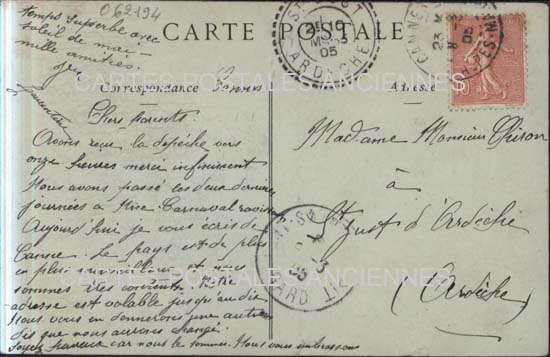 062194
temps superbe avec
soleil de mai
mille amitiés
CARTE POSTALE
Correspondance
Adresse
Cannes
CARTES POSTALES ANCIENNES
Chers Parents
Avons reçu la dépêche vers
onze heures merci infiniment
Nous avons passé les deux dernières
journées à Nice. Carnaval
Aujourd'hui je vous écris de
Cannes. Le pays est de plus
en plus merveilleux et nous
sommes très contents. Notre
adresse est valable jusqu'au dix
Nous vous en donnerons une autre
dès que nous aurons changé.
Soyez heureux car nous le sommes. Nous vous embrassons
Madame Monsieur
à
St Just d'Ardèche
(Ardèche)
CARTES POSTALES ANCIENNES
ST JUST
ARDÈCHE
05
CANNES
23
05